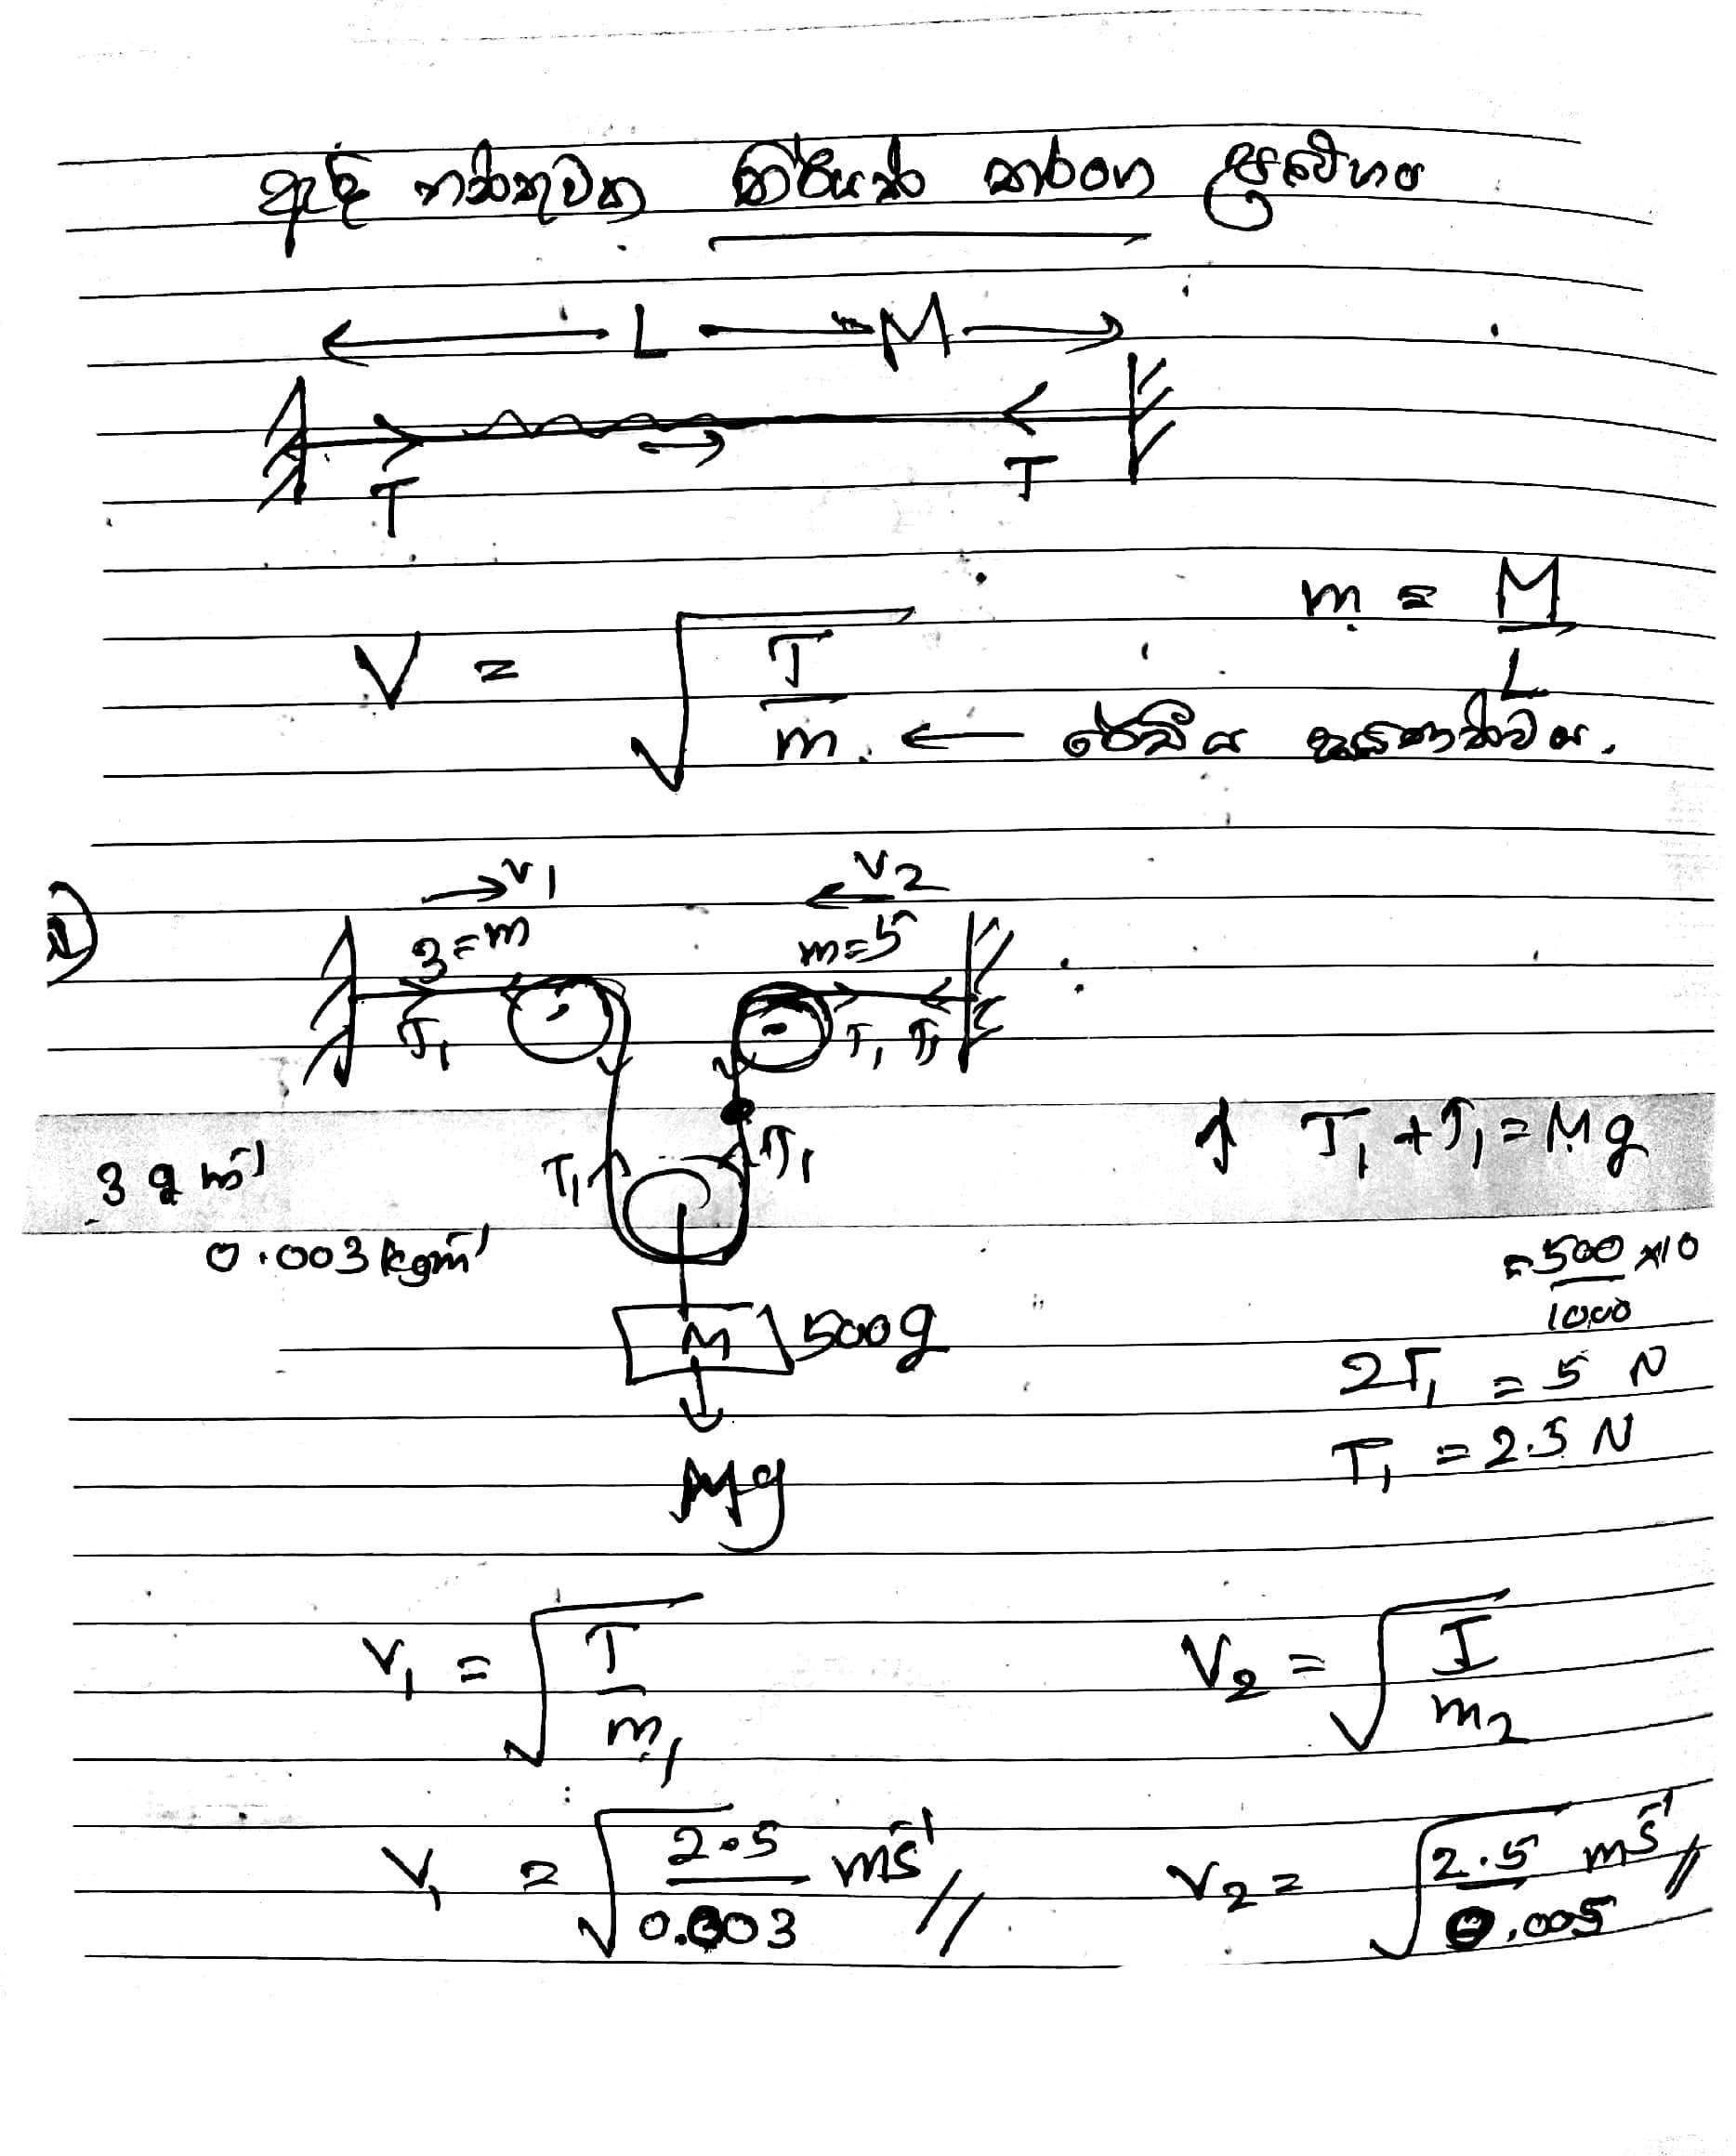 ඇදි තන්තුවක තීර්යක් තරංග ප්‍රවේගය
L M
T T
V = √(T/m) ← රේඛීය ඝනත්වය. m = M/L
v1 v2
3=m m=5
T1 T1 T1
T1 T1 ↑ T1 + T1 = Mg
3 g m⁻¹
0.003 kgm⁻¹ = 500/1000 ×10
M 500g
2T1 = 5 N
T1 = 2.5 N
Mg
V1 = √(T/m1) V2 = √(T/m2)
V1 = √(2.5/0.003) ms⁻¹// V2 = √(2.5/0.005) ms⁻¹//